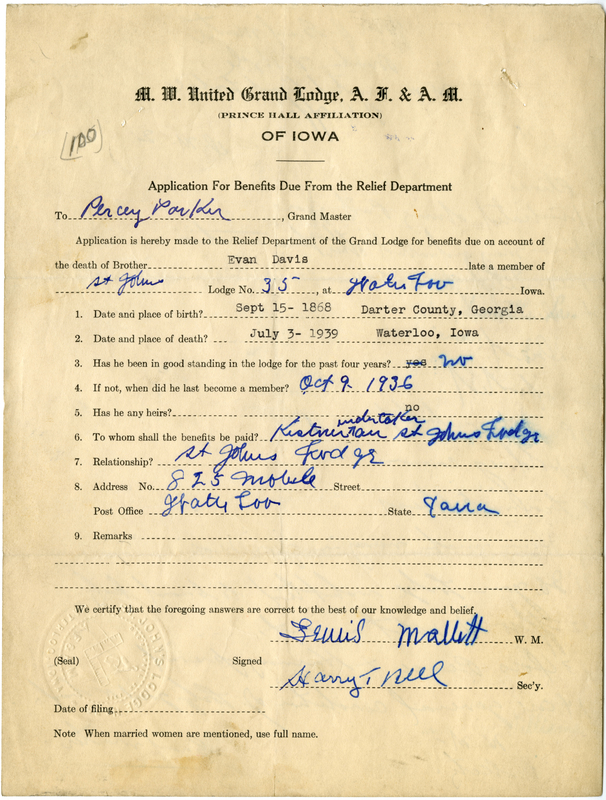 M. W. United Grand Lodge, A. F. & A. M.
(PRINCE HALL AFFILIATION)
OF IOWA
(100)
Application For Benefits Due From the Relief Department
To Percey Parker, Grand Master
Application is hereby made to the Relief Department of the Grand Lodge for benefits due on account of
the death of Brother Evan Davis late a member of
St Johns Lodge No. 35, at Waterloo Iowa.
1. Date and place of birth? Sept 15- 1868 Darter County, Georgia
2. Date and place of death? July 3- 1939 Waterloo, Iowa
3. Has he been in good standing in the lodge for the past four years? yes no
4. If not, when did he last become a member? Oct 9 1936
5. Has he any heirs? no
undertaker
6. To whom shall the benefits be paid? St Johns Lodge
7. Relationship? St Johns Lodge
8. Address No. 825 Mobile Street
Post Office Waterloo State Iowa
9. Remarks
We certify that the foregoing answers are correct to the best of our knowledge and belief.
Lewis Mallett W. M.
(Seal) Signed
Harry T Nell Sec'y.
Date of filing
Note When married women are mentioned, use full name.